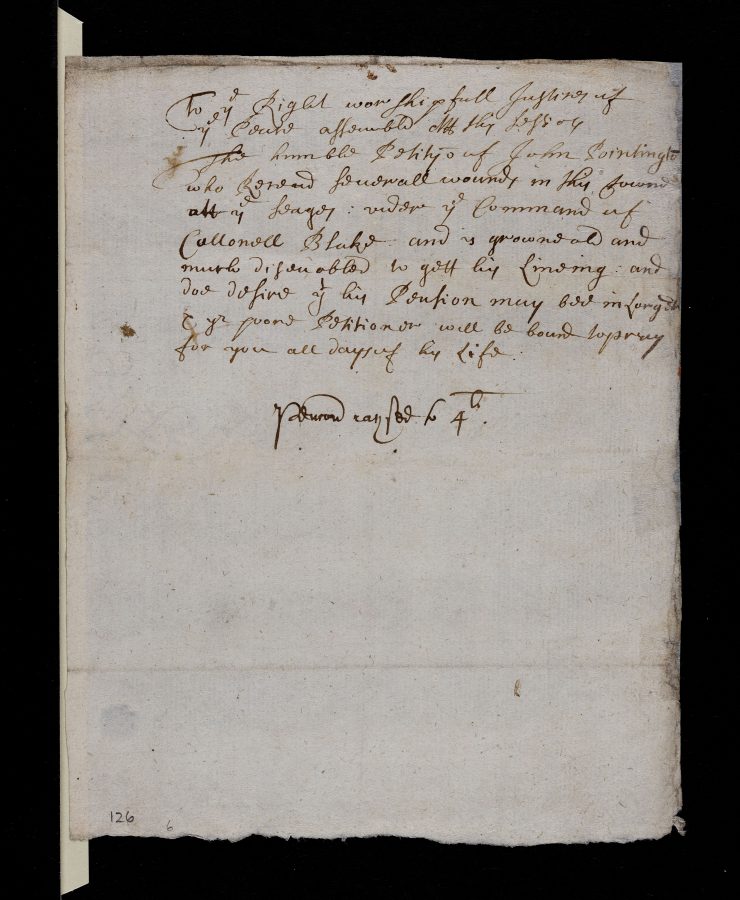 To ye Right worshipfull Justices of
ye Peace assembled att this session
The humble Petitjo of John Pointingto
who Receud seuerall wounds in this Towne
att ye seages : vnder ye Command of
Collonell Blake and is growne old and
much disenabled to gett his Liueing : and
doe desire yt his Pension may bee inlarged
& yr poore Petitioner will be bound to pray
for you all days of his Life .
Pencon raysed to 4li.
126
6